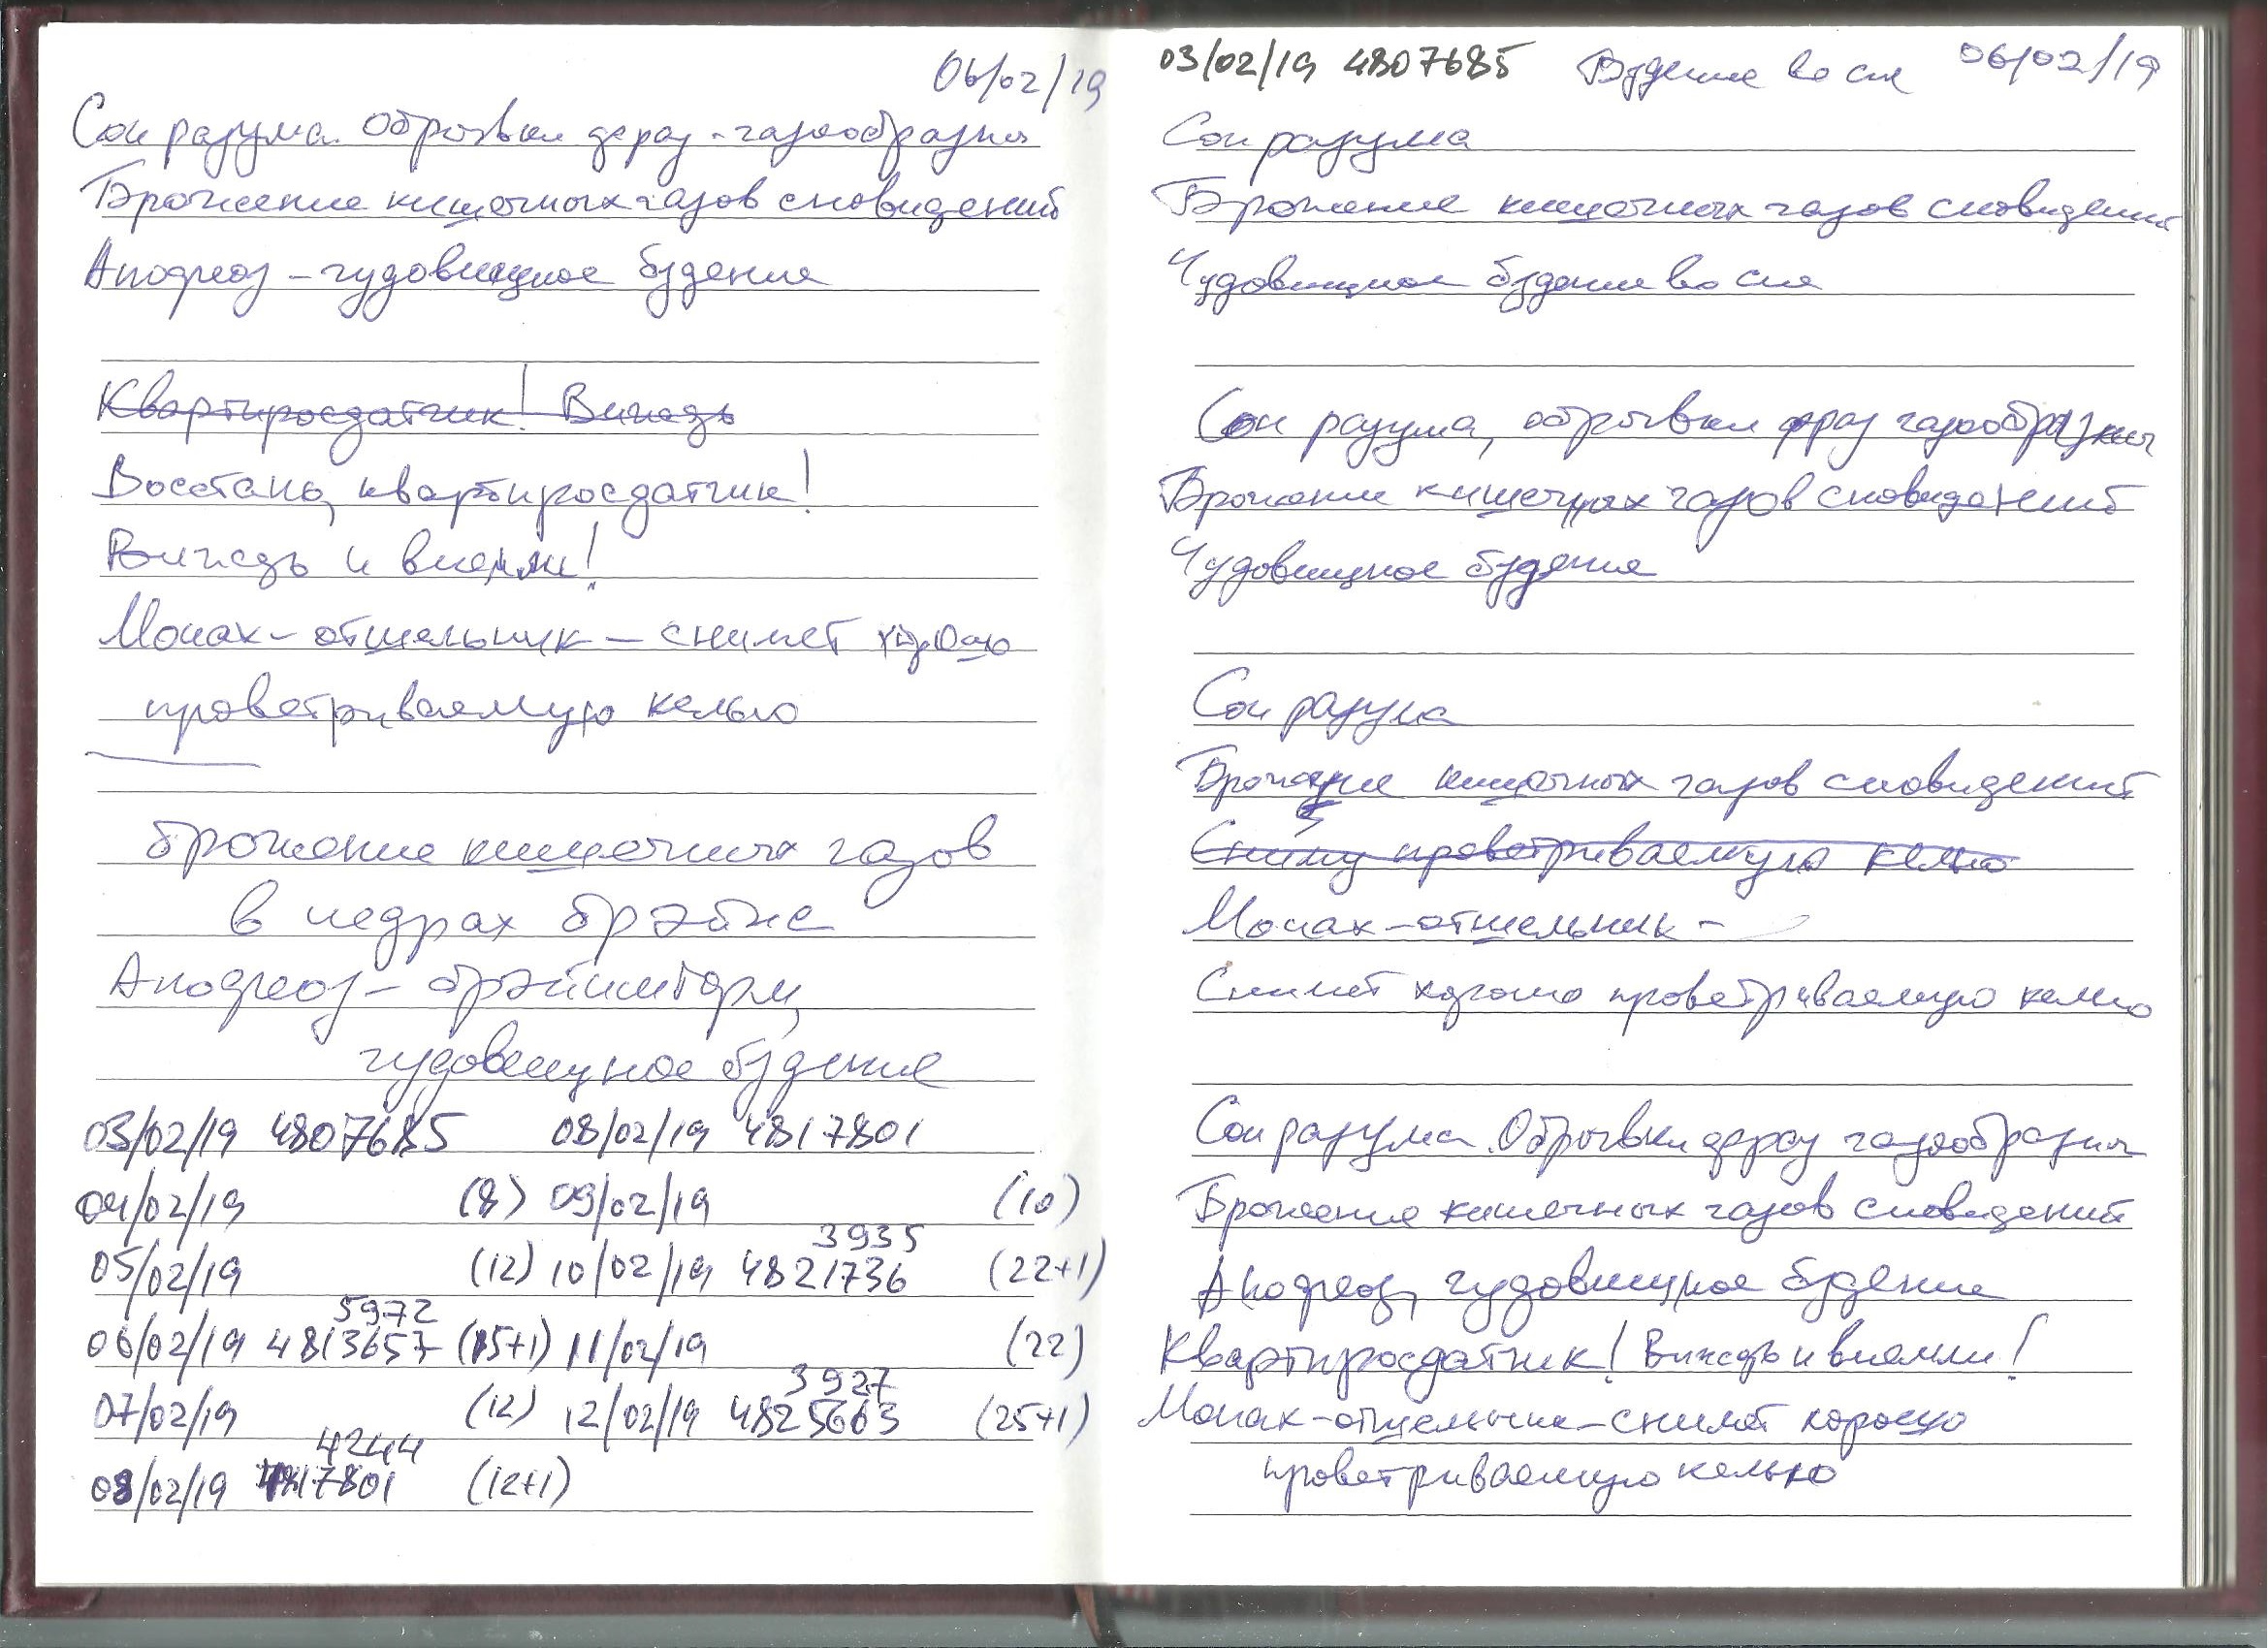 06/02/19
Сон разума. Обрывки фраз - газообразны
Брожение кишечных газов сновидений
Апофеоз – чудовищное бдение
Квартиросдатчик! Виждь
Восстань, квартиросдатчик!
Виждь и внемли!
Монах – отшельник – снимет хорошо
проветриваемую келью
брожение кишечных газов
в недрах брэйна
Апофеоз – брэйншторм,
чудовищное бдение
03/02/19 4807685 08/02/19 4817801
04/02/19 (8) 09/02/19 (10)
3935
05/02/19 (12) 10/02/19 4821736 (22+1)
5972
06/02/19 4813657 (15+1) 11/02/19 (22)
3927
07/02/19 (12) 12/02/19 4825663 (25+1)
4244
08/02/19 4817801 (12+1)
03/02/19 4807685 Бдение во сне 06/02/19
Сон разума
Брожение кишечных газов сновидений
Чудовищное бдение во сне
Сон разума, обрывки фраз газообразны
Брожение кишечных газов сновидений
Чудовищное бдение
Сон разума
Брожение кишечных газов сновидений
Сниму проветриваемую келью
Монах – отшельник –
Снимет хорошо проветриваемую келью
Сон разума. Обрывки фраз газообразны
Брожение кишечных газов сновидений
Апофеоз, чудовищное бдение
Квартиросдатчик! Виждь и внемли!
Монах – отшельник – снимет хорошо
проветриваемую келью